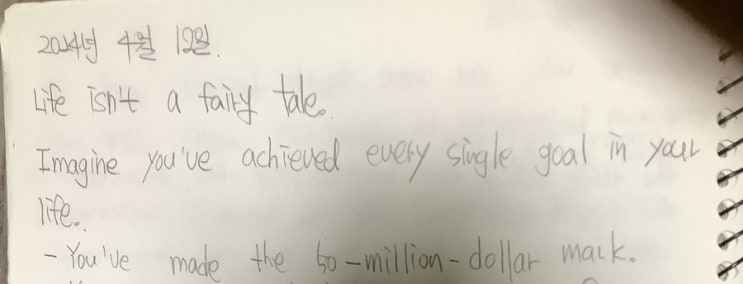 2024년 4월 12일.
Life isn't a fairy tale.
Imagine you've achieved every single goal in your
life.
- You've made the 50-million-dollar mark.